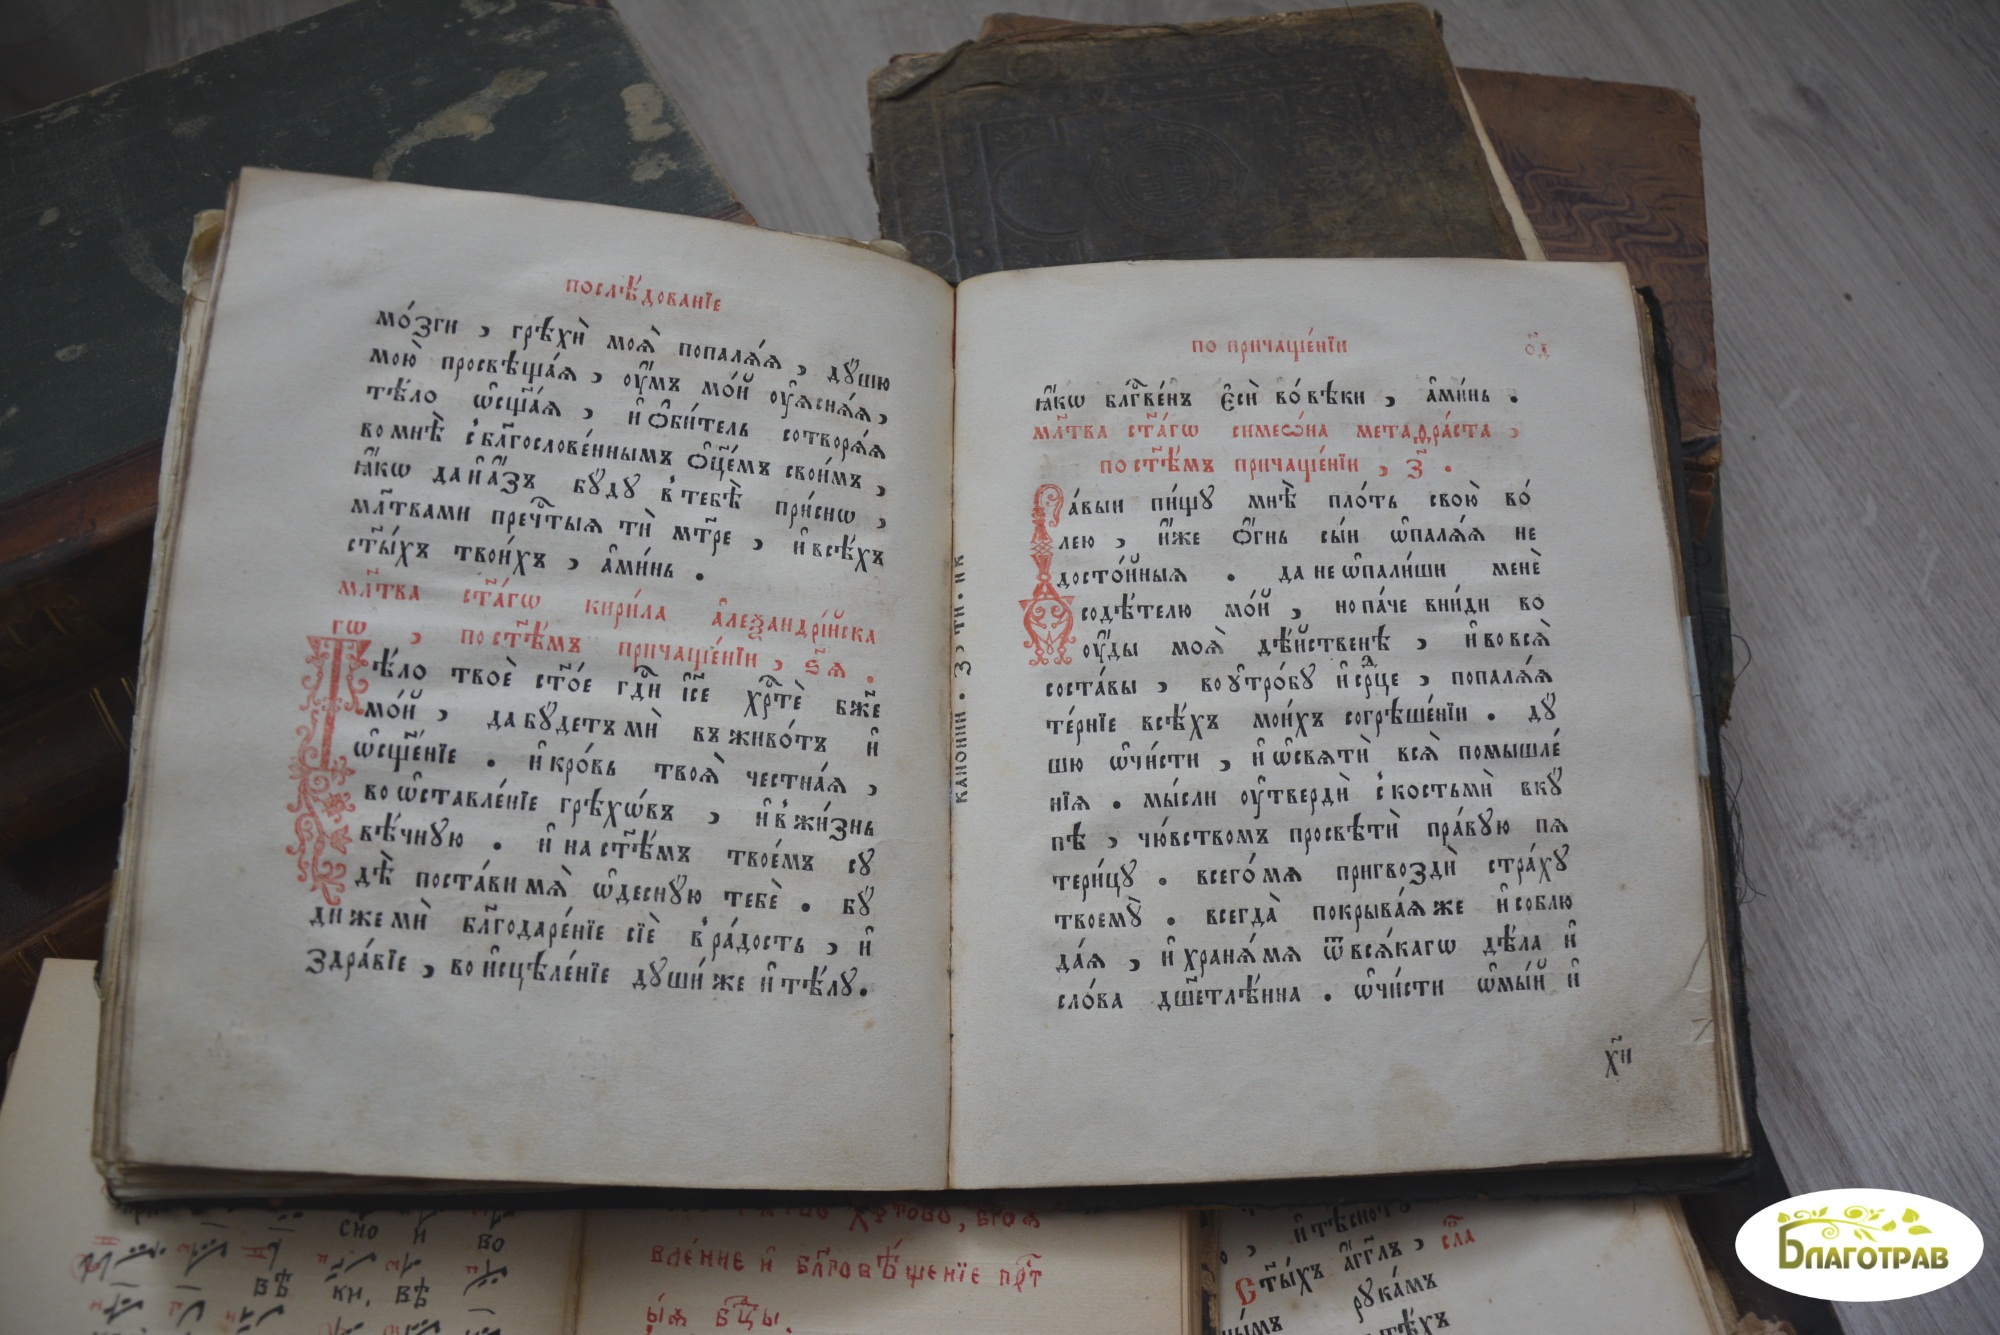 послѣ́дованїе
мо́зги , грѣхѝ моѧ̀ попалѧ́ѧ , дꙋ́шю
мою̀ просвѣща́ѧ , оу҆́мъ мо́й оу҆ѧснѧ́ѧ ,
тѣ́ло ѡ҆сщ҃а́ѧ , и҆ ѻ҆би́тель сотворѧ́ѧ
во мнѣ̀ с҆ бл҃гослове́ннымъ ѻ҆ц҃е́мъ свои́мъ ,
ꙗ҆́кѡ да и҆ а҆́зъ бꙋ́дꙋ в҆ тебѣ̀ при́снѡ ,
мл҃твами пречⷭ҇тыѧ тѝ мт҃ре , и҆ всѣ́хъ
ст҃ы́хъ твои́хъ , а҆ми́нь .
мл҃тва ст҃а́гѡ кири́ла а҆леѯандрі́йска
гѡ , по ст҃ѣ́мъ причаще́нїи , ѕ҃ѧ .
Тѣ́ло твоѐ ст҃о́е гдⷭ҇и і҆с҃е хрⷭ҇тѐ бж҃е
мо́й , да бꙋ́детъ мѝ въ живо́тъ и҆
ѡ҆сщ҃е́нїе . и҆ кро́вь твоѧ̀ честна́ѧ ,
во ѡ҆ставле́нїе грѣхѡ́въ , и҆ в҆ жи́знь
вѣ́чнꙋю . и҆ на ст҃ѣ́мъ твое́мъ сꙋ
дѣ̀ поста́ви мѧ̀ ѡ҆деснꙋ́ю тебѐ . бꙋ́
ди же мѝ бл҃годаре́нїе сїѐ в҆ ра́дость , и҆
здра́вїе , во и҆сцѣле́нїе дꙋши́ же и҆ тѣ́лꙋ .
канонни . з , ти . ик
по причаще́нїи
о҃д
ꙗ҆́кѡ бл҃гве́нъ є҆сѝ во́ вѣки , а҆ми́нь .
мл҃тва ст҃а́гѡ симеѡ́на метадра́ста ,
по ст҃ѣ́мъ причаще́нїи , з҃ .
Да́выи пи́щꙋ мнѣ̀ пло́ть свою̀ во́
лею , и҆́же ѻ҆́гнь сы́и ѡ҆палѧ́ѧ не
досто́йныѧ . да не ѡ҆пали́ши менѐ
содѣ́телю мо́й , но па́че вни́ди во
оу҆́ды моѧ̀ дѣ́йственѣ , и҆ во всѧ̀
соста́вы , во ᲂутро́бꙋ и҆ срⷣце , попалѧ́ѧ
те́рнїе всѣ́хъ мои́хъ согрѣше́нїи . дꙋ
шю ѡ҆чи́сти , и҆ ѡ҆свѧтѝ всѧ̀ помышле́
нїѧ . мы́сли оу҆твердѝ с҆ костьмѝ вкꙋ
пѣ , чю́вствомъ просвѣтѝ пра́вꙋю пѧ
тери́цꙋ . всего́ мѧ пригвоздѝ стра́хꙋ
твоемꙋ̀ . всегда̀ покрыва́ѧ же и҆ соблю
да́ѧ , и҆ хранѧ́ мѧ ѿ всѧ́кагѡ дѣ́ла и҆
сло́ва дш҃етлѣ́нна . ѡ҆чи́сти ѡ҆мы́й и҆
х҃и
сно и во
вѣ ки, вѣ
хрⷭ҇тово, бгоѧ
вле́ние и҆ бл҃говѣ́щенїе прⷭ҇т
ы́ѧ бцⷣы.
, и҆ тѣсно
ст҃ы́хъ а҆гг҃лъ, сла
рꙋка́мъ
Благотрав